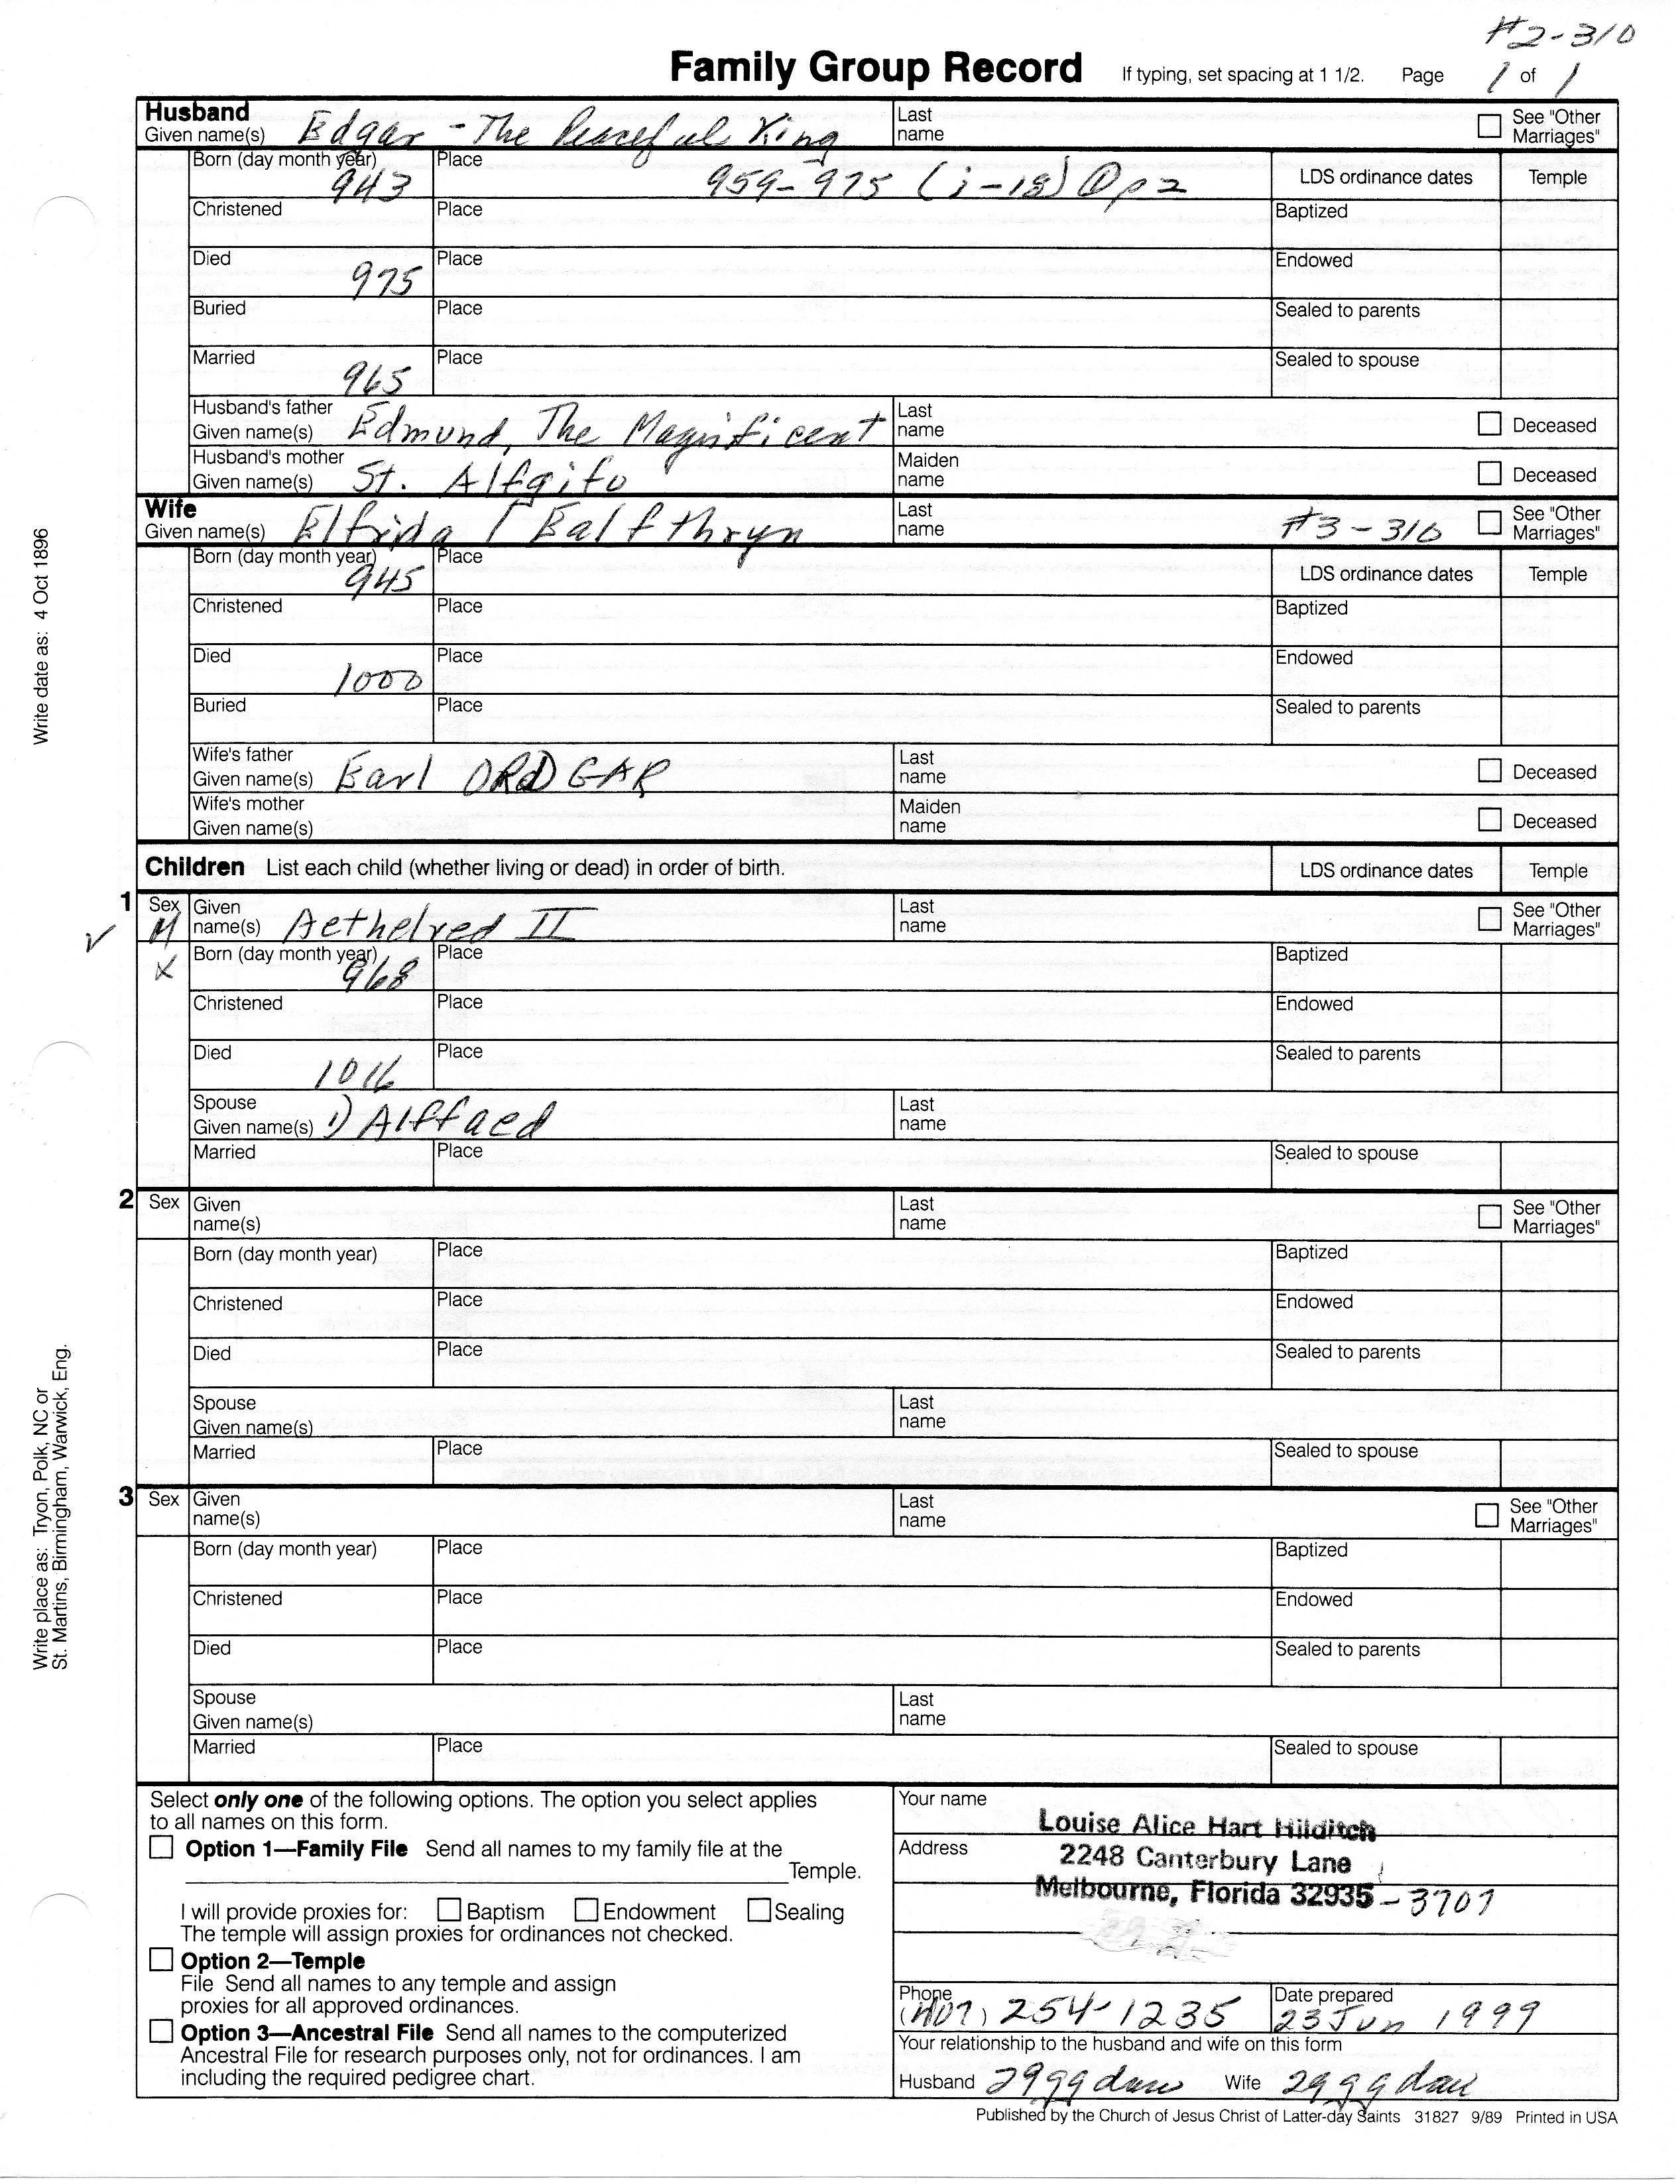 #2-310
Family Group Record If typing, set spacing at 1 1/2. Page 1 of 1
Husband
Given name(s) Edgar - The Peaceful King
Last name
See "Other Marriages"
Born (day month year) 943
Place 959-975 (i-18) Op2
LDS ordinance dates Temple
Christened Place Baptized
Died 975 Place Endowed
Buried Place Sealed to parents
Married 965 Place Sealed to spouse
Husband's father
Given name(s) Edmund, The Magnificent
Last name
Deceased
Husband's mother
Given name(s) St. Alfgifu
Maiden name
Deceased
Wife
Given name(s) Elfrida / Ealfthryn
Last name #3-310
See "Other Marriages"
Born (day month year) 945 Place LDS ordinance dates Temple
Christened Place Baptized
Died 1000 Place Endowed
Buried Place Sealed to parents
Wife's father
Given name(s) Earl ORDGAR
Last name
Deceased
Wife's mother
Given name(s)
Maiden name
Deceased
Children List each child (whether living or dead) in order of birth. LDS ordinance dates Temple
1 Sex M Given name(s) Aethelred II
Last name
See "Other Marriages"
x Born (day month year) 968 Place Baptized
Christened Place Endowed
Died 1016 Place Sealed to parents
Spouse
Given name(s) 1) Alffaed
Last name
Married Place Sealed to spouse
2 Sex Given name(s)
Last name
See "Other Marriages"
Born (day month year) Place Baptized
Christened Place Endowed
Died Place Sealed to parents
Spouse
Given name(s)
Last name
Married Place Sealed to spouse
3 Sex Given name(s)
Last name
See "Other Marriages"
Born (day month year) Place Baptized
Christened Place Endowed
Died Place Sealed to parents
Spouse
Given name(s)
Last name
Married Place Sealed to spouse
Write date as: 4 Oct 1896
Write place as: Tryon, Polk, NC or
St. Martins, Birmingham, Warwick, Eng.
Select only one of the following options. The option you select applies
to all names on this form.
Option 1—Family File Send all names to my family file at the
Temple.
I will provide proxies for: Baptism Endowment Sealing
The temple will assign proxies for ordinances not checked.
Option 2—Temple
File Send all names to any temple and assign
proxies for all approved ordinances.
Option 3—Ancestral File Send all names to the computerized
Ancestral File for research purposes only, not for ordinances. I am
including the required pedigree chart.
Your name Louise Alice Hart Hilditch
Address 2248 Canterbury Lane
Melbourne, Florida 32935-3707
Phone (407) 254-1235
Date prepared 23 Jun 1999
Your relationship to the husband and wife on this form
Husband 29ggdau Wife 29ggdau
Published by the Church of Jesus Christ of Latter-day Saints 31827 9/89 Printed in USA